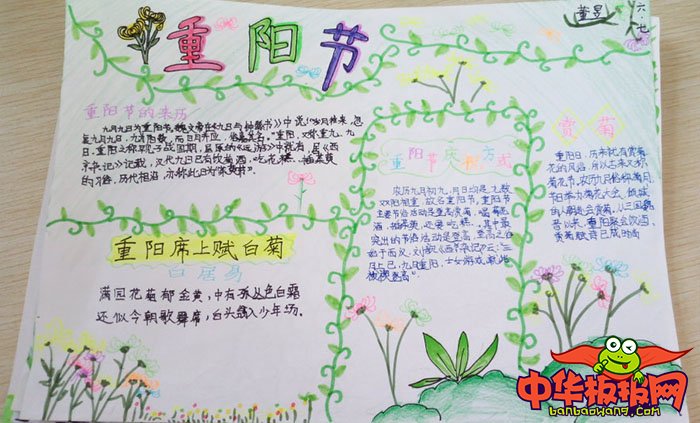 重阳节
董昱
六.七
重阳节的来历
九月九日为重阳节,魏文帝在《九日与钟繇书》中说:"岁月往来,忽
复九月九日,九为阳数,而日月并应,
日,重阳之称早见于战国期,屈原的《远游》中就有,据《西
京杂记》记载,汉代九日已有饮菊酒,吃花糕,插茱萸
的习俗,历代相沿,亦称此日为茱萸节"。
重阳席上赋白菊
白居易
满园花菊郁金黄,中有孤丛色白霜
还似今朝歌舞席,白头翁入少年场。
重阳节庆祝方式
农历九月初九,月日均是九数
双阳相重,故名重阳节,重阳节
主要节俗活动是登高赏菊,喝菊花
酒,插茱萸,还要吃糕,其中最
突出的节俗活动是登高,登高之俗
始于西汉,刘歆《西京杂记》云:"三
月上巳,九月重阳,士女游戏,就此
祓禊登高"
赏菊
重阳日,历来就有赏菊
花的风俗,所以古来又称
菊花节,农历九月俗称菊月,
节日举办菊花大会,倾城
的人都赴会赏菊,从三国魏
晋以来,重阳聚会饮酒、
赏菊赋诗已成时尚
中华板报网
banbaowang.com